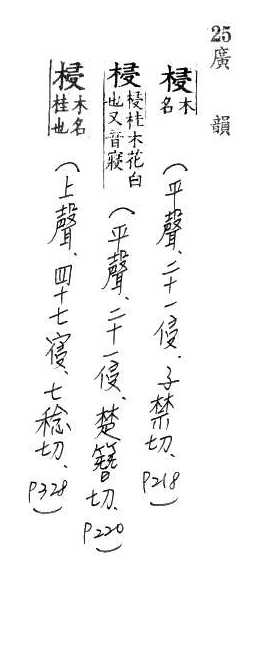 25 廣韻
梫 木名 (平聲、二十一侵、子禁切、P218)
梫 梫杜木花白也又音寑 (平聲、二十一侵、楚簪切、P220)
梫 木名桂也 (上聲、四十七寑、七稔切、P328)